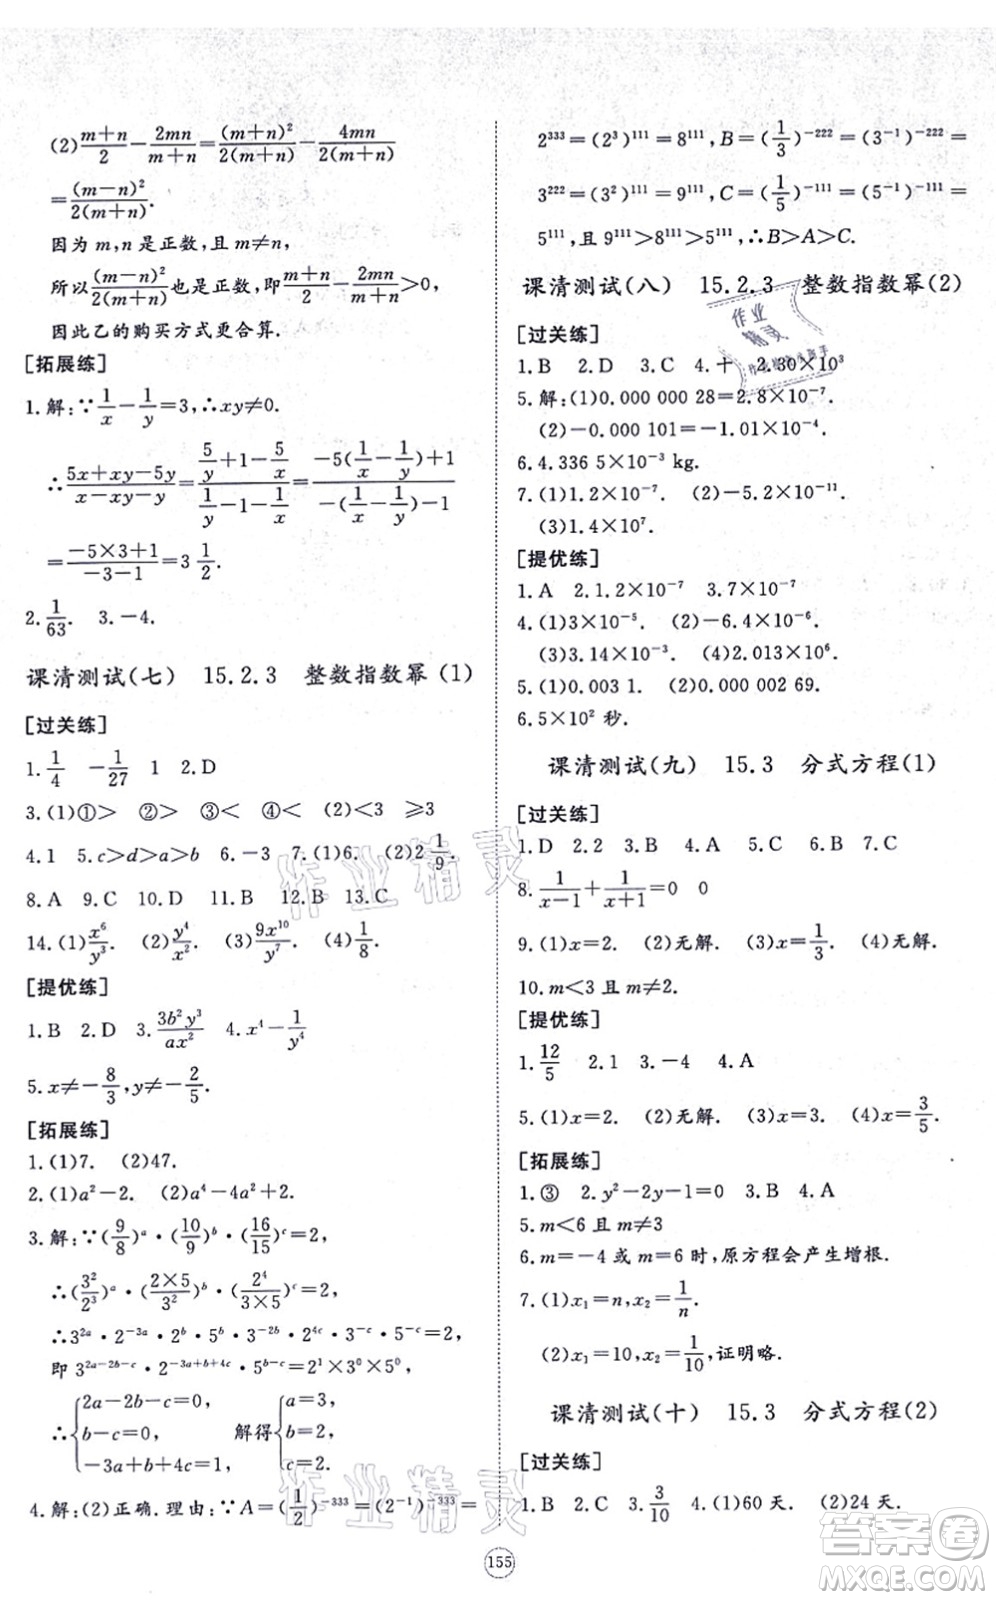 (2)(m+n)/2−2mn/(m+n)=(m+n)²/2(m+n)−4mn/2(m+n)
=(m−n)²/2(m+n).
因为 m,n 是正数,且 m≠n,
所以(m−n)²/2(m+n)是正数,即(m+n)/2−2mn/(m+n)>0,
因此乙的购买方式更合算.
[拓展练]
1.解:∵1/x−1/y=3,∴xy≠0.
∴(5x+xy−5y)/(x−xy−y)=(5/y+1−5/x)/(1/y−1−1/x)=(−5(1/x−1/y)+1)/(−(1/x−1/y)−1)
=(−5×3+1)/(−3−1)=3 1/2.
2.1/63. 3.−4.
课清测试(七) 15.2.3 整数指数幂(1)
[过关练]
1.1/4 −1/27 1 2.D
3.(1)①> ②> ③< ④< (2)<3 ≥3
4.1 5.c>d>a>b 6.−3 7.(1)6. (2)2 1/9.
8.A 9.A 10.D 11.B 12.B 13.C
14.(1)x⁶/y³. (2)y⁴/x². (3)9x¹⁰/y⁷. (4)1/8.
[提优练]
1.B 2.D 3.3b²y³/ax² 4.x⁴−1/y⁴
5.x≠−8/3,y≠−2/5.
[拓展练]
1.(1)7. (2)47.
2.(1)a²−2. (2)a⁴−4a²+2.
3.解:∵(9/8)ᵃ·(10/9)ᵇ·(16/15)ᶜ=2,
∴(3²/2³)ᵃ·(2×5/3²)ᵇ·(2⁴/3×5)ᶜ=2,
∴3²ᵃ·2⁻³ᵃ·2ᵇ·5ᵇ·3⁻²ᵇ·2⁴ᶜ·3⁻ᶜ·5⁻ᶜ=2,
即 3²ᵃ⁻²ᵇ⁻ᶜ·2⁻³ᵃ⁺ᵇ⁺⁴ᶜ·5ᵇ⁻ᶜ=2¹×3⁰×5⁰,
∴{2a−2b−c=0, b−c=0, −3a+b+4c=1, 解得{a=3, b=2, c=2.
4.解:(2)正确.理由:∵A=(1/2)⁻³³³=(2⁻¹)⁻³³³=
2³³³=(2³)¹¹¹=8¹¹¹,B=(1/3)⁻²²²=(3⁻¹)⁻²²²=
3²²²=(3²)¹¹¹=9¹¹¹,C=(1/5)⁻¹¹¹=(5⁻¹)⁻¹¹¹=
5¹¹¹,且 9¹¹¹>8¹¹¹>5¹¹¹,∴B>A>C.
课清测试(八) 15.2.3 整数指数幂(2)
[过关练]
1.B 2.D 3.C 4.十 2.30×10³
5.解:(1)0.000 000 28=2.8×10⁻⁷.
(2)−0.000 101=−1.01×10⁻⁴.
6.4.336 5×10⁻³ kg.
7.(1)1.2×10⁻⁷. (2)−5.2×10⁻¹¹.
(3)1.4×10⁷.
[提优练]
1.A 2.1.2×10⁻⁷ 3.7×10⁻⁷
4.(1)3×10⁻⁵. (2)−6.4×10⁻⁶.
(3)3.14×10⁻⁸. (4)2.013×10⁶.
5.(1)0.003 1. (2)0.000 002 69.
6.5×10² 秒.
课清测试(九) 15.3 分式方程(1)
[过关练]
1.D 2.2 3.B 4.A 5.2 6.B 7.C
8.1/(x−1)+1/(x+1)=0 0
9.(1)x=2. (2)无解. (3)x=1/3. (4)无解.
10.m<3 且 m≠2.
[提优练]
1.12/5 2.1 3.−4 4.A
5.(1)x=2. (2)无解. (3)x=3. (4)x=3/5.
[拓展练]
1.③ 2.y²−2y−1=0 3.B 4.A
5.m<6 且 m≠3
6.m=−4 或 m=6 时,原方程会产生增根.
7.(1)x₁=n,x₂=1/n.
(2)x₁=10,x₂=1/10,证明略.
课清测试(十) 15.3 分式方程(2)
[过关练]
1.B 2.C 3.3/10 4.(1)60 天. (2)24 天.
155
作业精灵
作业精灵
作业精灵
答案卷
MXQE.COM